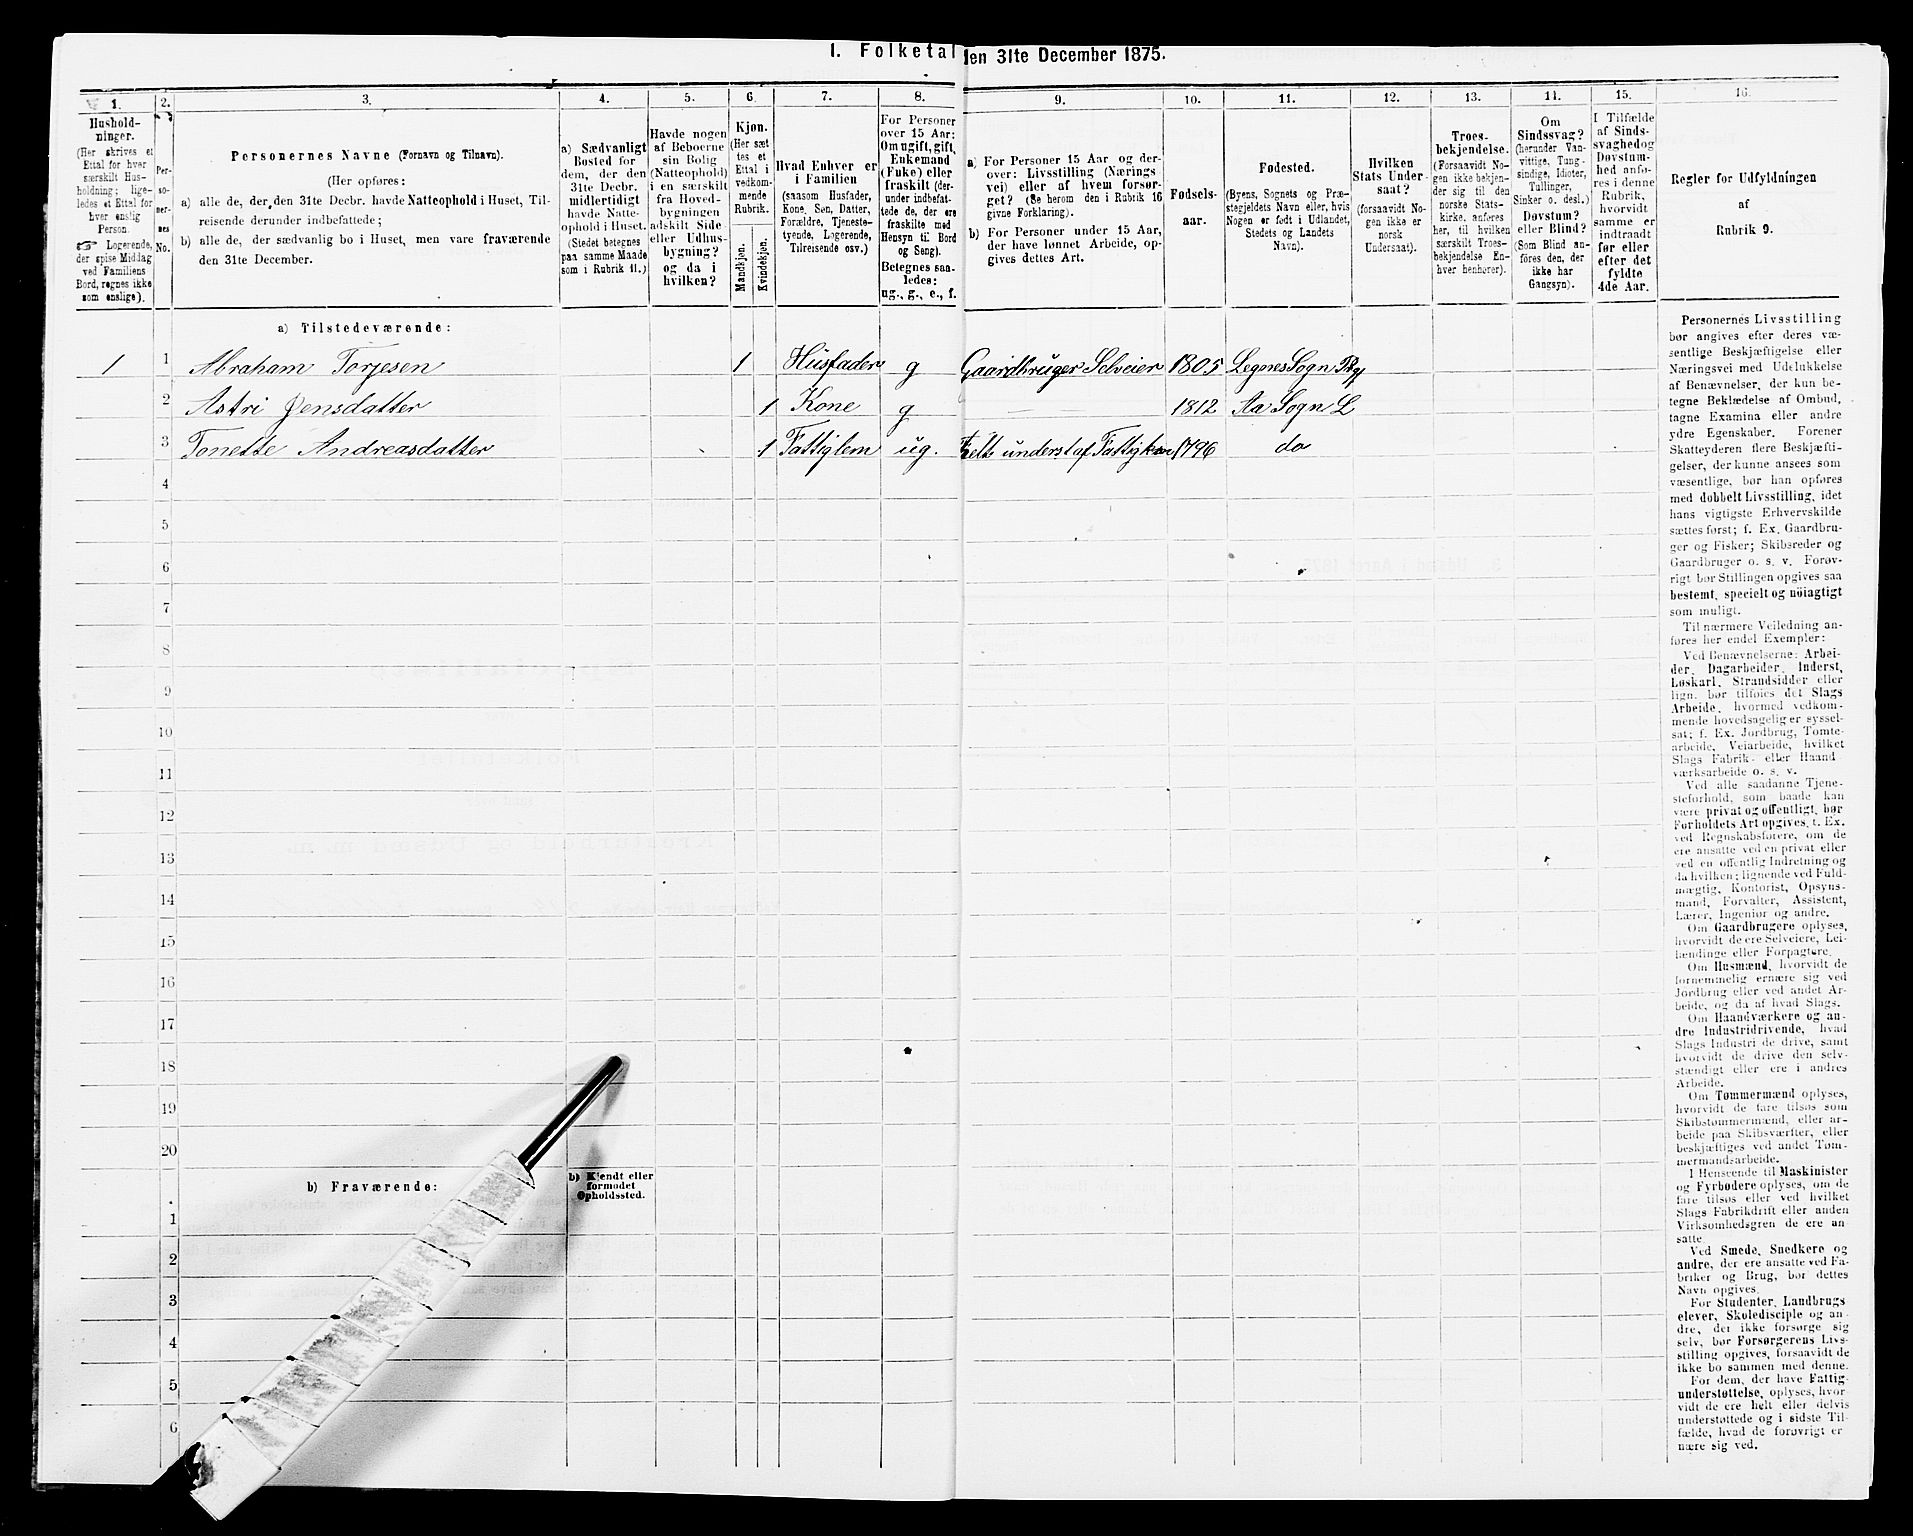 I. Folketal den 31te December 1875.
1.
2.
3.
4.
5.
6.
7.
8.
9.
10.
11.
12.
13.
14.
15.
16.
Hushold-
ninger.
(Her skrives et
Ettal for hver
særskilt Hus-
holdning; lige-
ledes et Ettal for
hver enslig
Person.
☞ Logerende,
der spise Middag
ved Familiens
Bord, regnes ikke
som enslige).
Per-
so-
ner-
nes
No.
Personernes Navne (Fornavn og Tilnavn).
(Her opføres:
a) alle de, der den 31te Decbr. havde Natteophold i Huset, Til-
reisende derunder indbefattede;
b) alle de, der sædvanlig bo i Huset, men vare fraværende
den 31te December.
a) Sædvanligt
Bosted for
dem, der den
31te Decbr.
midlertidigt
havde Natte-
ophold i Huset.
(Stedet betegnes
paa samme Maade
som i Rubrik 11.)
Havde nogen
af Beboerne
sin Bolig
(Natteophold)
i en særskilt
fra Hoved-
bygningen
adskilt Side-
eller Udhus-
bygning?
og da i
hvilken?
Kjøn.
(Her sæt
tes et
Ettal i
vedkom-
mende
Rubrik.
Mandkjøn.
Kvindekjøn.
Hvad Enhver er
i Familien
(saasom Husfader,
Kone, Søn, Datter,
Forældre, Tjeneste-
tyende, Logerende,
Tilreisende osv.)
For Personer
over 15 Aar:
Om ugift, gift,
Enkemand
(Enke) eller
fraskilt (der-
under indbefat-
tede de, der ere
fraskilte med
Hensyn til Bord
og Seng).
Betegnes saa-
ledes:
ug., g., e., f.
a) For Personer 15 Aar og der-
over: Livsstilling (Nærings
vei) eller af hvem forsør-
get? (Se herom den i Rubrik 16
givne Forklaring).
b) For Personer under 15 Aar,
der have lønnet Arbeide, op-
gives dettes Art.
Fødsels-
aar.
Fødested.
(Byens, Sognets og Præ-
stegjeldets Navn eller, hvis
Nogen er født i Udlandet,
Stedets og Landets
Navn).
Hvilken
Stats Under
saat?
(forsaavidt No-
gen ikke er
norsk
Undersaat).
Troes-
bekjendelse.
(Forsaavidt No-
gen ikke bekjen-
der sig til den
norske Stats-
kirke, anføres
her, til hvilken
særskilt Troes-
bekjendelse En-
hver henhører).
Om
Sindssvag?
(herunder Van-
vittige, Tung-
sindige, Idioter,
Tullinger,
Sinker o. desl.)
Døvstum?
eller Blind?
(Som Blind an-
føres den, der
ikke har
Gangsyn).
I Tilfælde
af Sinds-
svaghed og
Døvstum-
hed anfø-
res i denne
Rubrik,
hvorvidt
samme er
indtraadt
før eller
efter det
fyldte
4de Aar.
Regler for Udfyldningen
af
Rubrik 9.
a) Tilstedeværende:
1 1 Abraham Torjesen 1 Husfader g Gaardbruger Selveier 1805 Legnes Sogn
2 Astri Jensdatter 1 Kone g — 1812 Aa Sogn L
3 Tonette Andreasdatter 1 Fattiglem ug. underst af 1796 do
4
5
6
7
8
9
10
11
12
13
14
15
16
17
18
19
20
b) Fraværende:
b) Kjendt eller
formodet
Opholdssted.
1
2
3
4
5
6
Personernes Livsstilling
bør angives efter deres væ-
sentlige Beskjæftigelse eller
Næringsvei med Udelukkelse
af Benævnelser, der kun be-
tegne Beklædelse af Ombud,
tagne Examina eller andre
ydre Egenskaber. Forener
Skatteyderen flere Beskjæfti-
gelser, der kunne ansees som
væsentlige, bør han opføres
med dobbelt Livsstilling, idet
hans vigtigste Erhvervskilde
sættes først; f. Ex. Gaardbru-
ger og Fisker; Skibsreder og
Gaardbruger o. s. v. Forøv-
rigt bør Stillingen opgives saa
bestemt, specielt og nöiagtigt
som muligt.
Til nærmere Veiledning an-
føres her endel Exempler:
Ved Benævnelserne: Arbei-
der, Dagarbeider, Inderst,
Løskarl, Strandsidder eller
lign. bør tilføies det Slags
Arbeide, hvormed vedkom-
mende hovedsagelig er syssel-
sat; f. Ex. Jordbrug, Tomte-
arbeide, Veiarbeide, hvilket
Slags Fabrik- eller Haand
værksarbeide o. s. v.
Ved alle saadanne Tjene-
steforhold, som baade kan
være privat og offentligt, bør
Forholdets Art opgives, f. Ex.
ved Regnskabsførere, om de
ere ansatte ved en privat eller
ved en offentlig Indretning og
da hvilken; lignende ved Fuld-
mægtig, Kontorist, Opsyns-
mand, Forvalter, Assistent,
Lærer, Ingeniør og andre.
Om Gaardbrugere oplyses,
hvorvidt de ere Selveiere, Lei-
lændinge eller Forpagtere.
Om Husmænd, hvorvidt de
fornemmelig ernære sig ved
Jordbrug eller ved andet Ar-
beide, og da af hvad Slags.
Om Haandværkere og an-
dre Industridrivende, hvad
Slags Industri de drive, samt
hvorvidt de drive den selv-
stændigt eller ere i andres
Arbeide.
Om Tømmermænd oplyses,
hvorvidt de fare tilsøs som
Skibstømmermænd, eller ar-
beide paa Skibsværfter, eller
beskjæftiges ved andet Tøm-
mermandsarbeide.
I Henseende til Maskinister
og Fyrbødere oplyses, om de
fare tilsøs eller ved hvilket
Slags Fabrikdrift eller anden
Virksomhedsgren de ere an-
satte.
Ved Smede, Snedkere og
andre, der ere ansatte ved Fa-
briker og Brug, bør dettes
Navn opgives.
For Studenter, Landbrugs
elever, Skoledisciple og an-
dre, der ikke forsørge sig
selv, bør Forsørgerens Livs-
stilling opgives, forsaavidt de
ikke bo sammen med denne.
For dem, der have Fattig-
understøttelse, oplyses, hvor-
vidt de ere helt eller delvis
understøttede og i sidste Til-
fælde, hvad de forøvrigt er
nære sig ved.